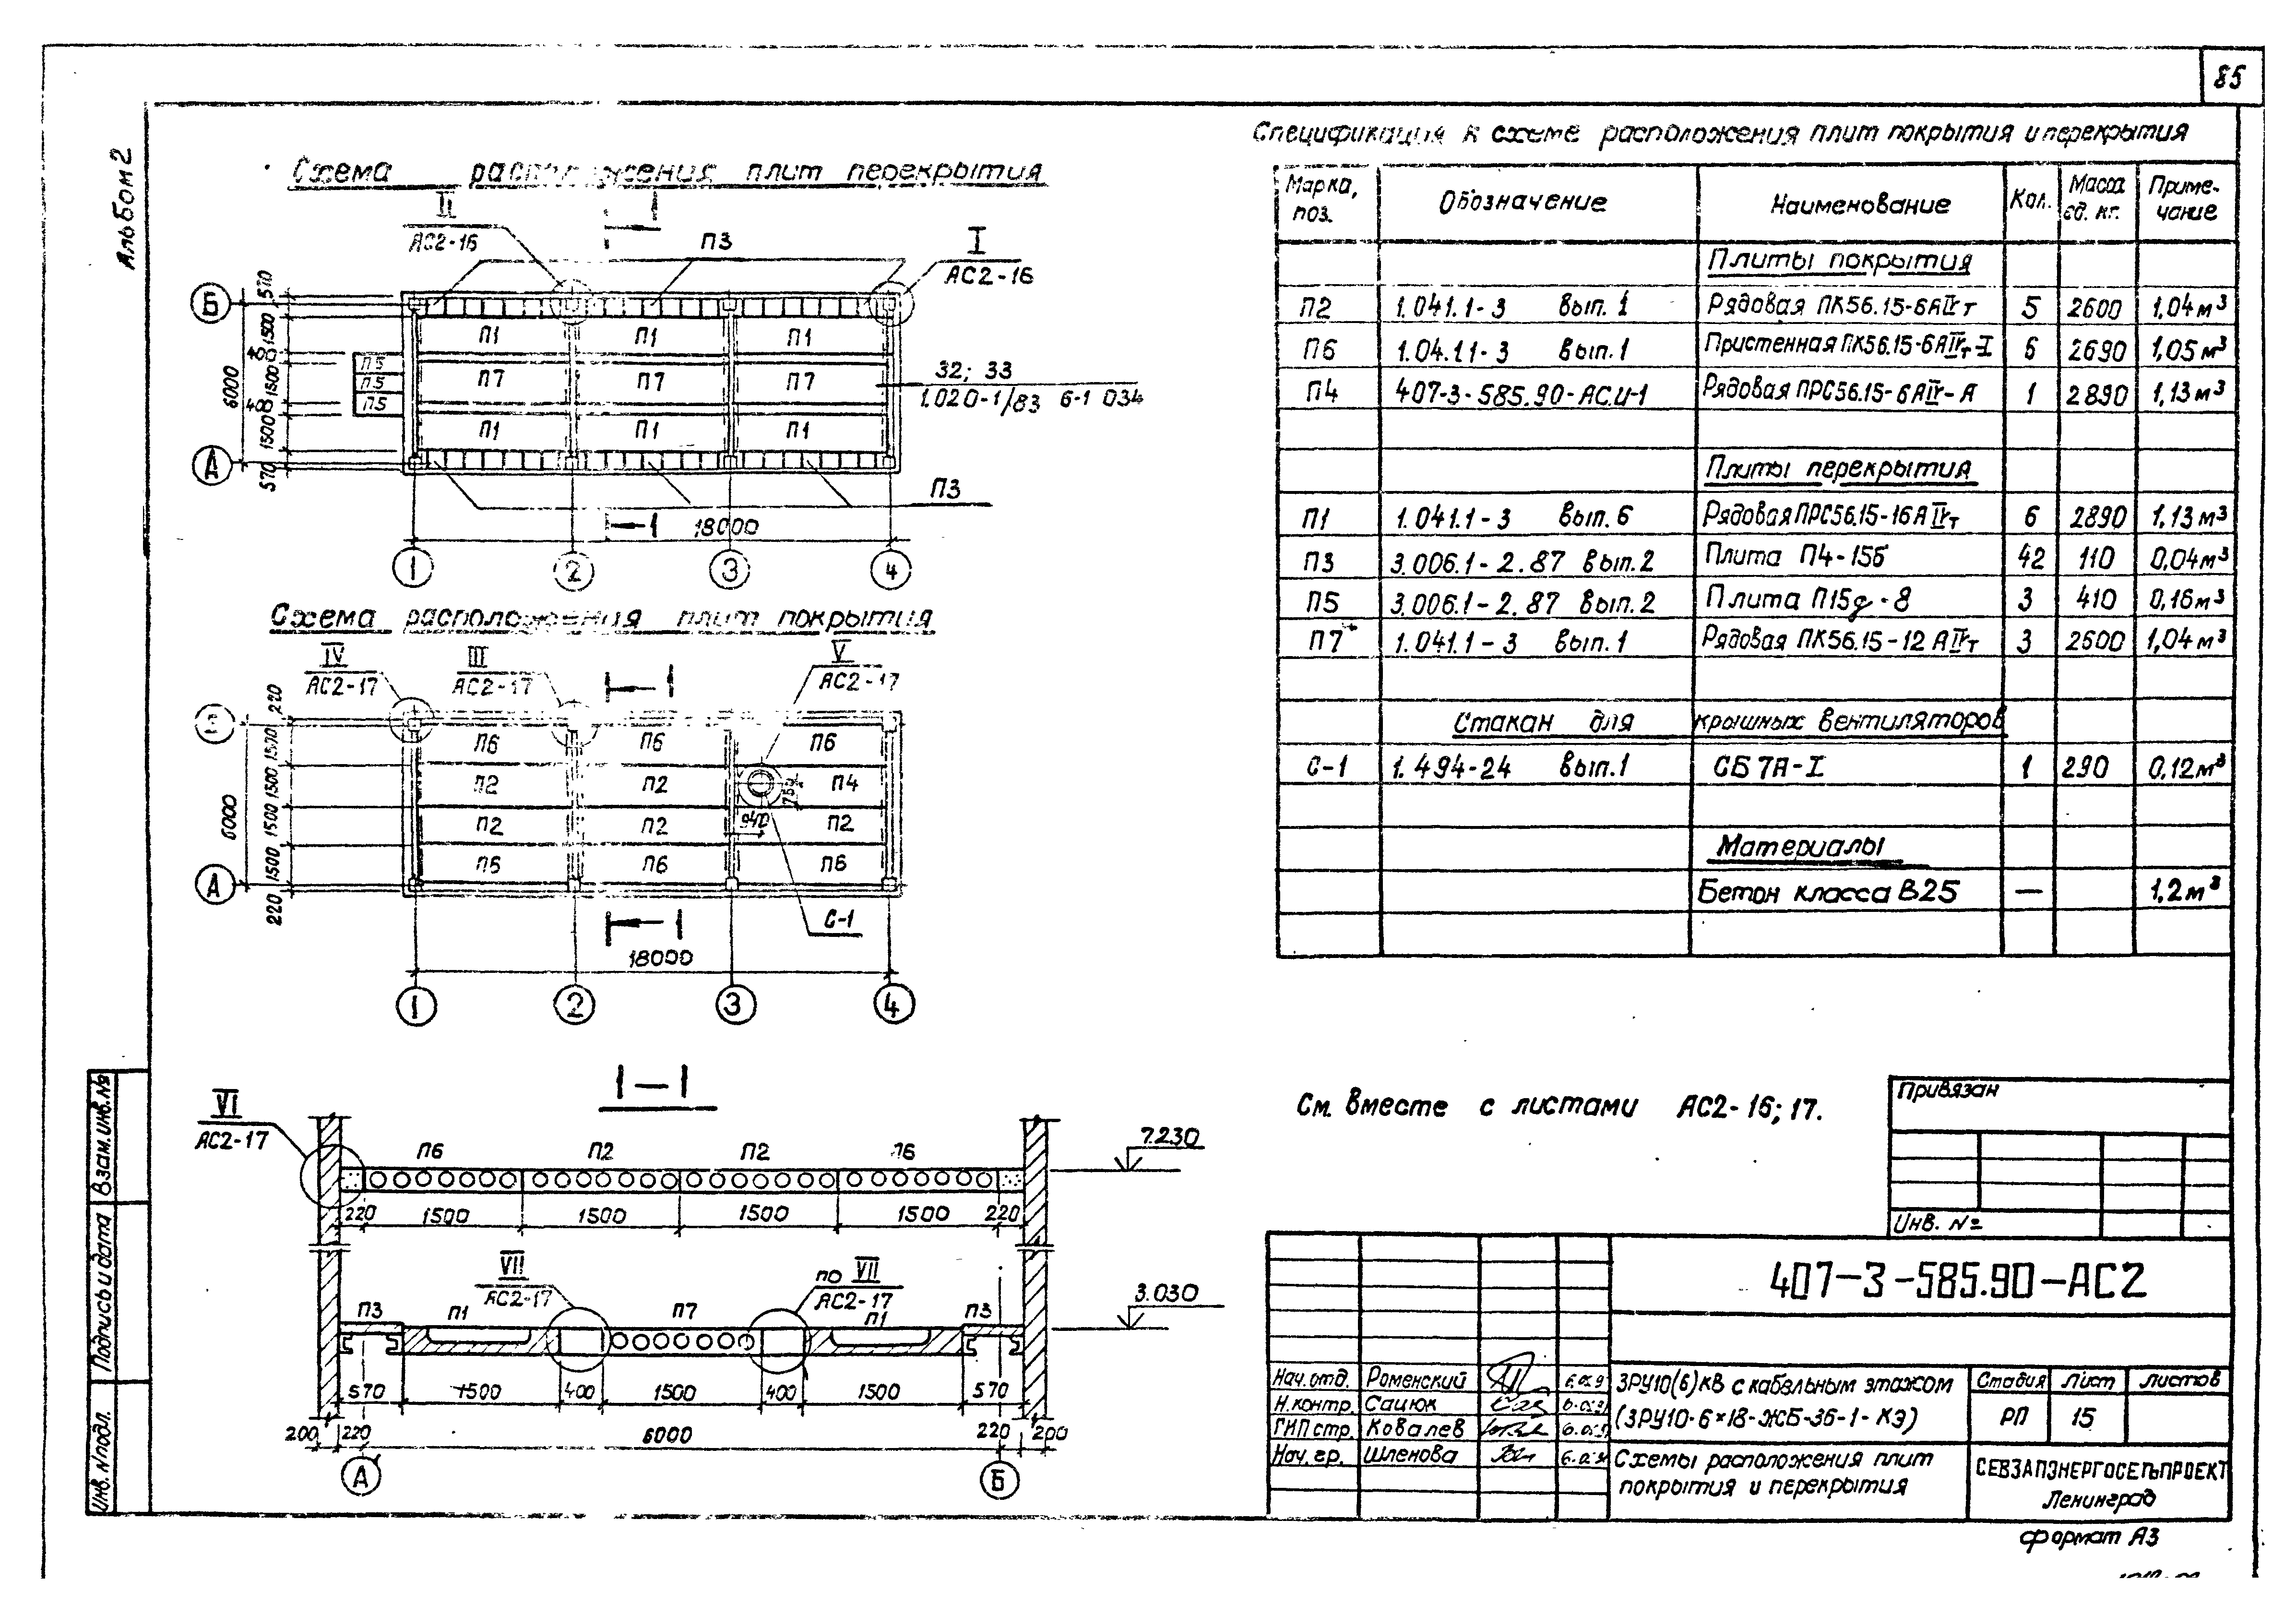 85
Альбом 2
Схема расположения плит перекрытия
II
АС2-16
П3
I
АС2-16
Б
А
570
1500
400
1500
400
1500
570
6000
П5
П5
П5
П1 П1 П1
П7 П7 П7
П1 П1 П1
32; 33
1.020-1/83 6-1 034
П3
1
18000
1 2 3 4
Схема расположения плит покрытия
IV
АС2-17
III
АС2-17
1
V
АС2-17
220
1500
1500
1500
1500
220
6000
А
П6 П6 П6
П2 П2 П4
П2 П2 П2
П6 П6 П6
940
С-1
1
18000
1 2 3 4
1-1
VI
АС2-17
П6 П2 П2 П6
7.230
220 1500 1500 1500 1500 220
VII
АС2-17
по VII
АС2-17
П3 П1 П7 П1 П3
3.030
570 1500 400 1500 400 1500 570
200 220 6000 220 200
А Б
Спецификация к схеме расположения плит покрытия и перекрытия
Марка, поз. Обозначение Наименование Кол. Масса ед. кг. Примечание
Плиты покрытия
П2 1.041.1-3 вып. 1 Рядовая ПК56.15-6АIVт 5 2600 1,04м³
П6 1.04.1.1-3 вып.1 Пристенная ПК56.15-6АIVт-I 6 2690 1,05м³
П4 407-3-585.90-АС.И-1 Рядовая ПРС56.15-6АIV-А 1 2890 1,13м³
Плиты перекрытия
П1 1.041.1-3 вып. 6 Рядовая ПРС56.15-16АIVт 6 2890 1,13м³
П3 3.006.1-2.87 вып.2 Плита П4-15б 42 110 0,04м³
П5 3.006.1-2.87 вып.2 Плита П15д-8 3 410 0,16м³
П7 1.041.1-3 вып.1 Рядовая ПК56.15-12 АIVт 3 2600 1,04м³
Стакан для крышных вентиляторов
С-1 1.494-24 вып.1 СБ7А-I 1 290 0,12м³
Материалы
Бетон класса В25 — 1,2м³
См. вместе с листами АС2-16; 17.
Привязан
Инв. №
407-3-585.90-АС2
Нач.отд. Роменский
Н.контр. Сацюк
ГИП стр. Ковалев
Нач. гр. Шленова
ЗРУ10(6)кВ с кабельным этажом
(ЗРУ10-6×18-ЖБ-36-1-КЭ)
Стадия Лист Листов
РП 15
Схемы расположения плит
покрытия и перекрытия
СЕВЗАПЭНЕРГОСЕТЬПРОЕКТ
Ленинград
формат А3
Взам.инв.№
Подпись и дата
Инв. №подл.